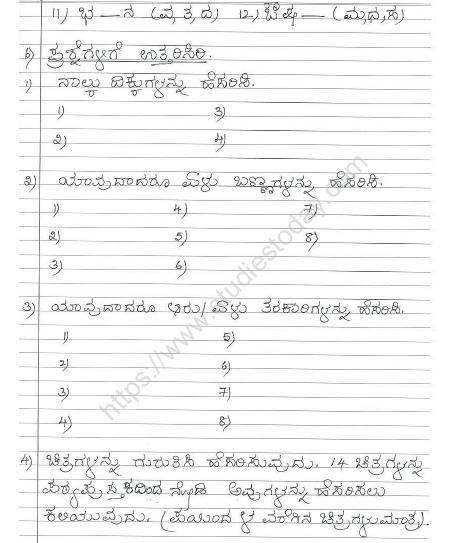 11) ಭ — ನ (ವ, ತ, ದ) 12) ಔಷ — (ಮ, ಧ, ಹ)
6) ಪ್ರಶ್ನೆಗಳಿಗೆ ಉತ್ತರಿಸಿರಿ.
1) ನಾಲ್ಕು ದಿಕ್ಕುಗಳನ್ನು ಹೆಸರಿಸಿ.
1) 3)
2) 4)
2) ಯಾವುದಾದರೂ ಏಳು ಬಣ್ಣಗಳನ್ನು ಹೆಸರಿಸಿ.
1) 4) 7)
2) 5) 8)
3) 6)
3) ಯಾವುದಾದರೂ ಆರು/ಏಳು ತರಕಾರಿಗಳನ್ನು ಹೆಸರಿಸಿ.
1) 5)
2) 6)
3) 7)
4) 8)
4) ಚಿತ್ರಗಳನ್ನು ಗುರುತಿಸಿ ಹೆಸರಿಸುವುದು. 14 ಚಿತ್ರಗಳನ್ನು
ಪಠ್ಯಪುಸ್ತಕದಿಂದ ನೋಡಿ ಅವುಗಳನ್ನು ಹೆಸರಿಸಲು
ಕಲಿಯುವುದು. (ಪಯಿಂದ ಳ ವರೆಗಿನ ಚಿತ್ರಗಳು ಮಾತ್ರ).
https://www.studiestoday.com